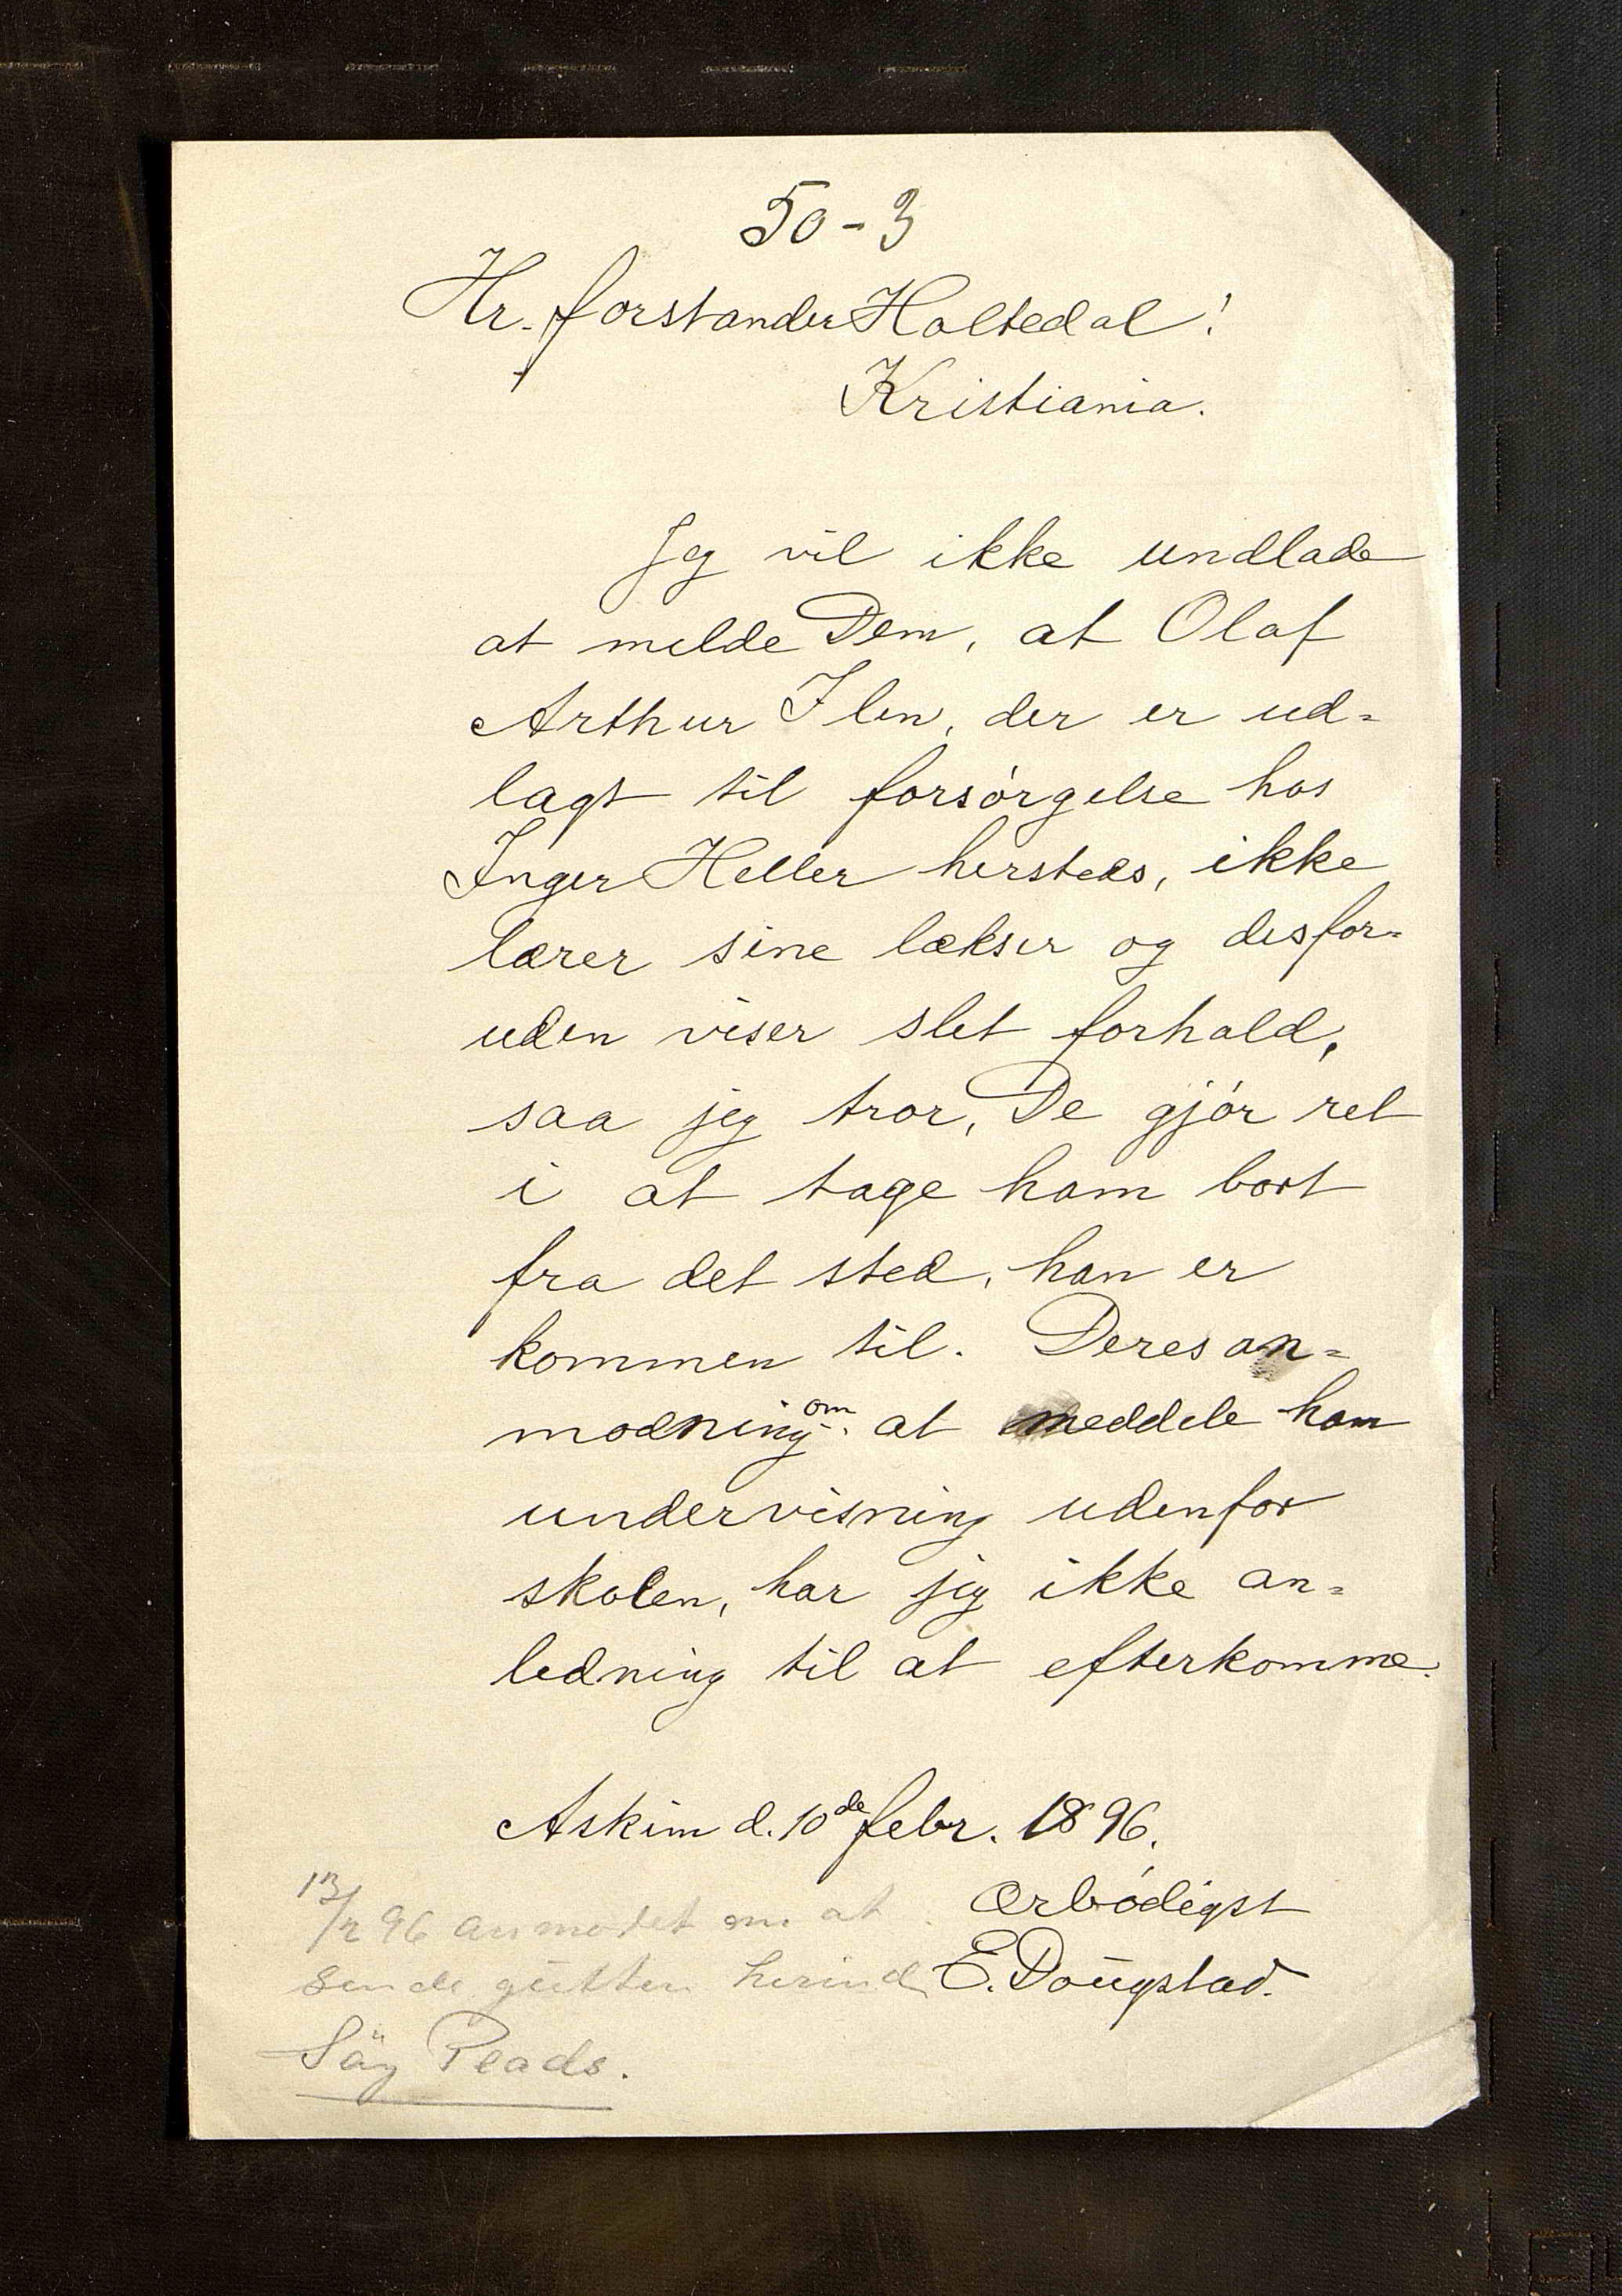 50-3
Hr. forstander Holtedal!
Kristiania.
Jeg vil ikke undlade
at melde Dem, at Olaf
Arthur Ilen, der er ud=
lagt til forsórgelse hos
Inger Heller hersteds, ikke
lærer sine lækser og desfor=
uden viser slet forhold,
saa jeg tror, De gjór ret
i at tage ham bort
fra det sted, han er
kommen til. Deres an=
modning om at meddele ham
undervisning udenfor
skolen, har jeg ikke an=
ledning til at efterkomme.
Askim d. 10de febr. 1896.
Ærbódigst
E. Dougstad.
13/2 96 anmodet om at
sende gutten herind
Säg Plads.